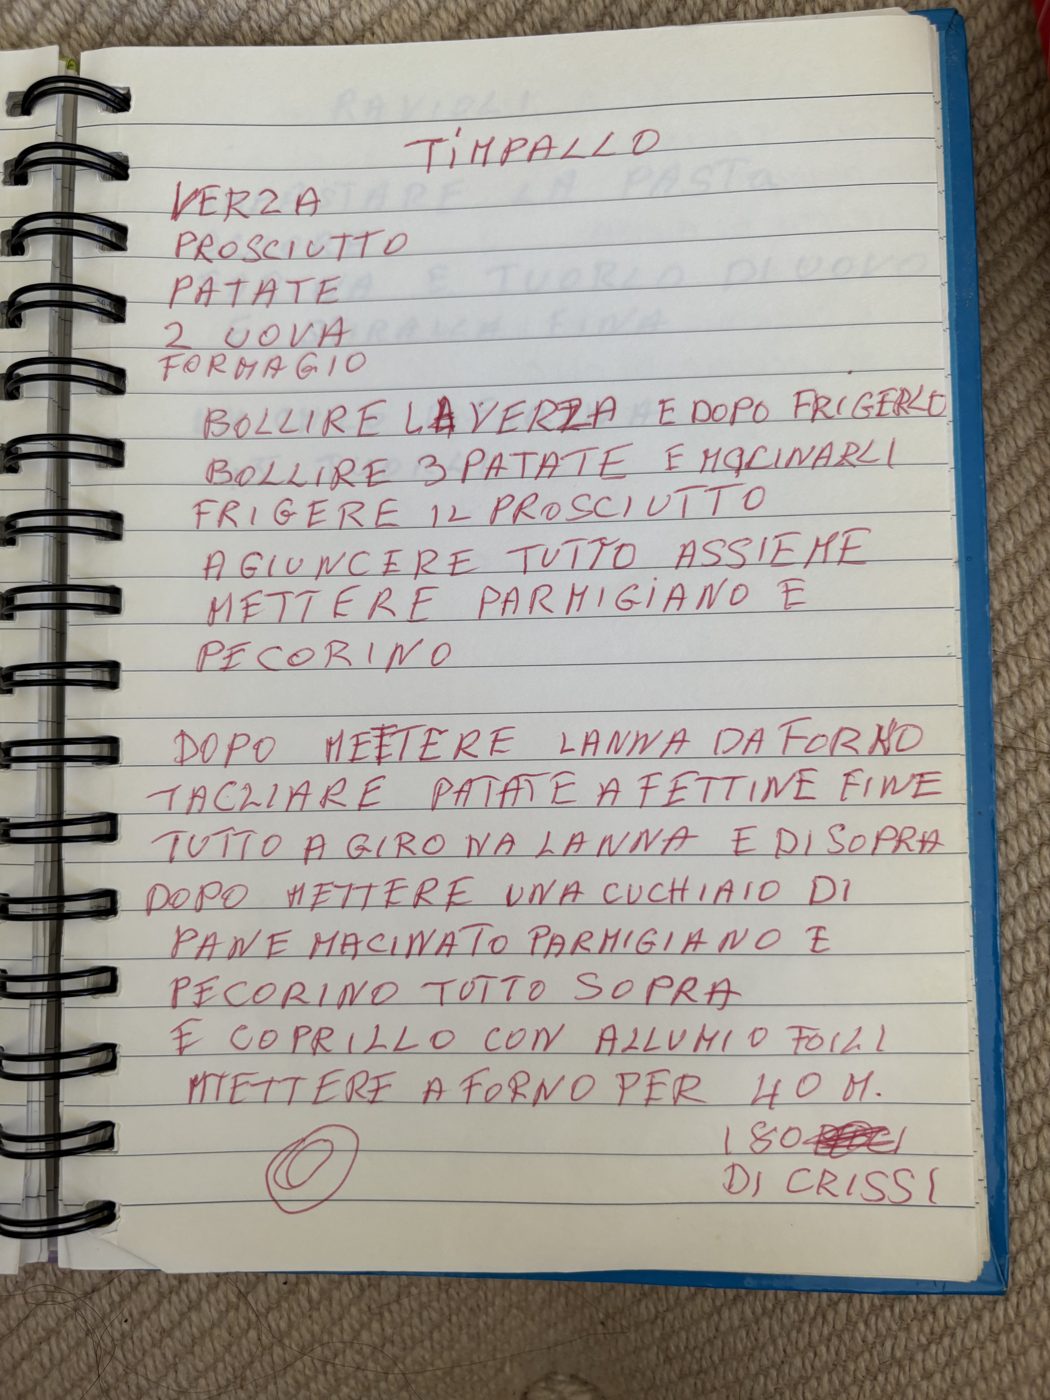 TIMPALLO
VERZA
PROSCIUTTO
PATATE
2 UOVA
FORMAGIO
BOLLIRE LA VERZA E DOPO FRIGERLO
BOLLIRE 3 PATATE E MACINARLI
FRIGERE IL PROSCIUTTO
AGIUNCERE TUTTO ASSIEME
METTERE PARMIGIANO E
PECORINO
DOPO METTERE LANNA DA FORNO
TAGLIARE PATATE A FETTINE FINE
TUTTO A GIRO NA LANNA E DI SOPRA
DOPO METTERE UNA CUCHIAIO DI
PANE MACINATO PARMIGIANO E
PECORINO TUTTO SOPRA
E COPRILLO CON ALLUMIO FOILI
METTERE A FORNO PER 40 M.
180
DI CRISSI